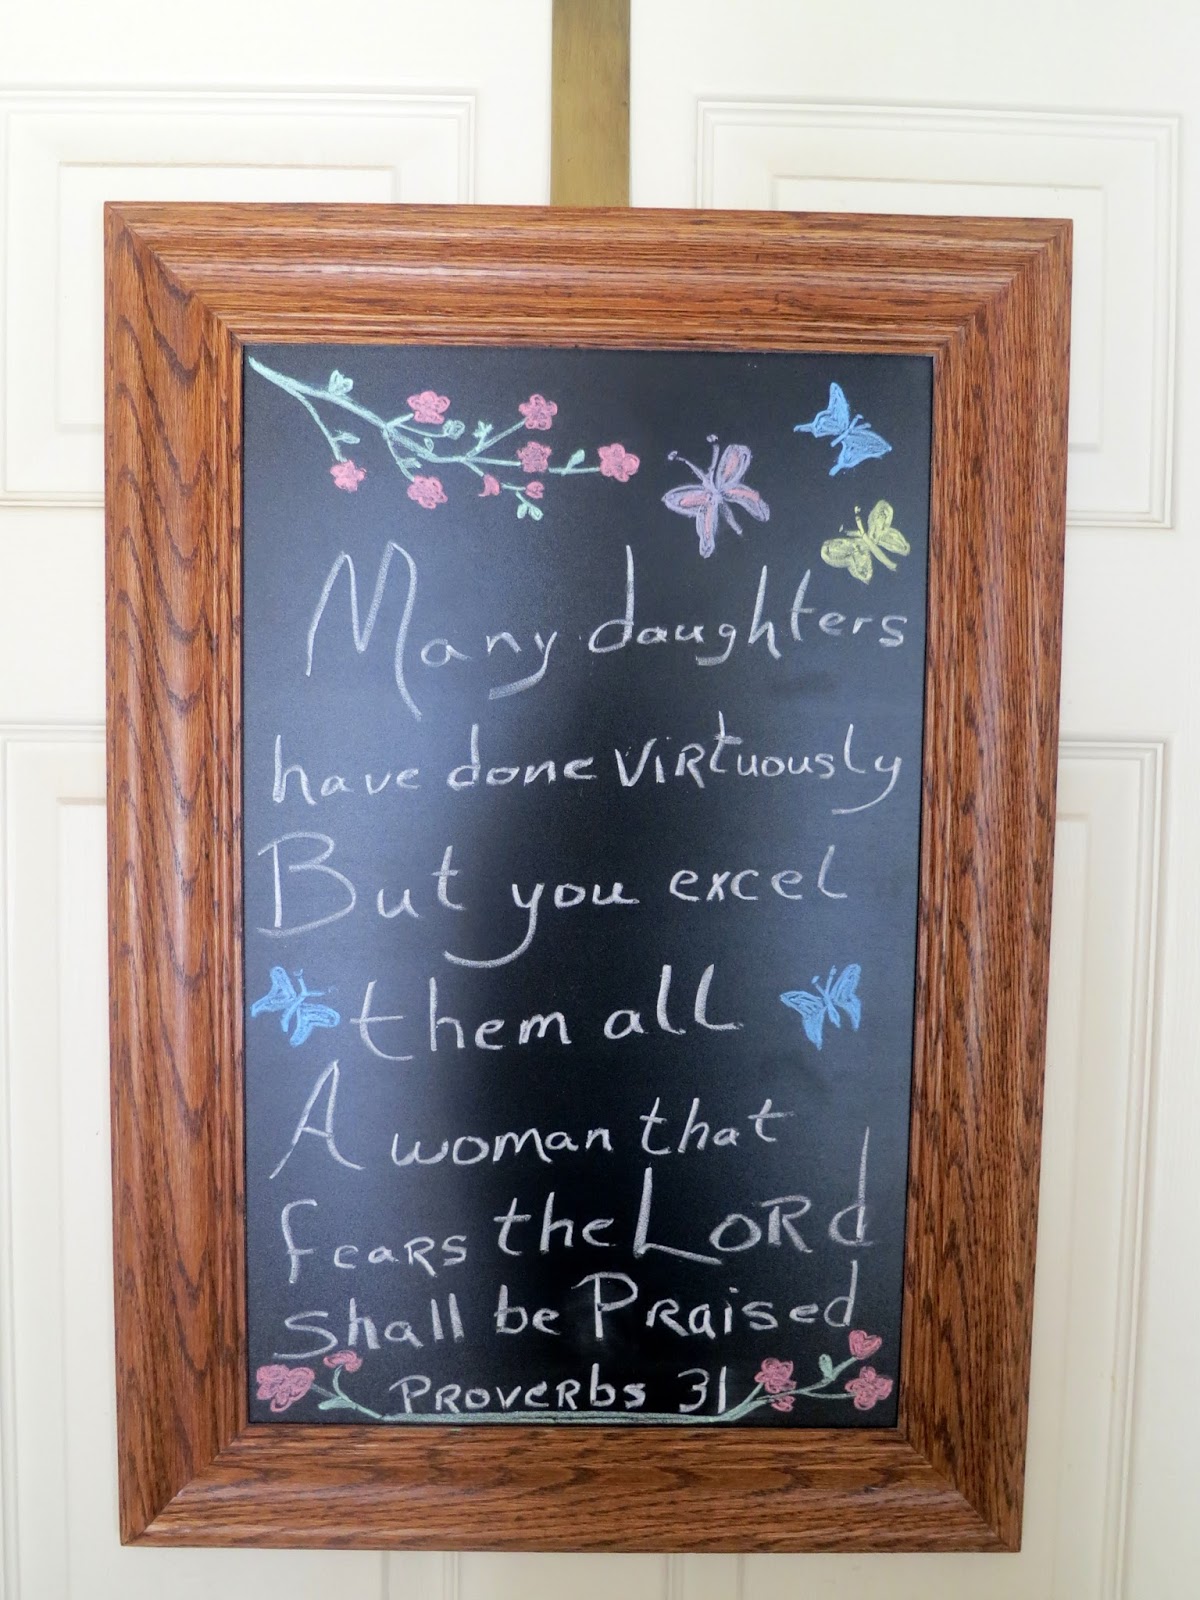 Many daughters
have done virtuously
But you excel
them all
A woman that
fears the Lord
shall be Praised
Proverbs 31